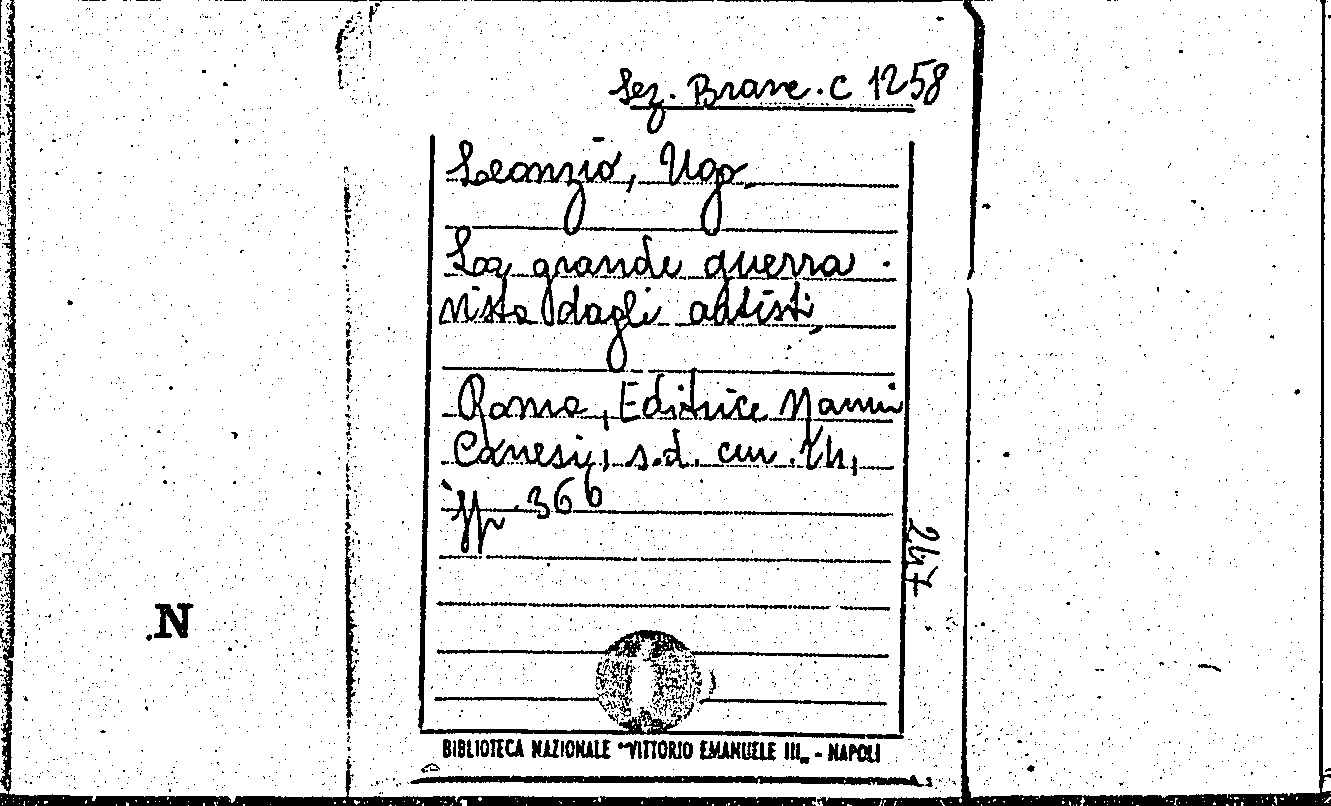 Sez. Branc. C 1258
Leonzio, Ugo
La grande guerra
vista dagli artisti
Roma, Editrice Nanni
Canesi, s.d. cm. 24,
pp. 366
247
N
BIBLIOTECA NAZIONALE "VITTORIO EMANUELE III„ - NAPOLI